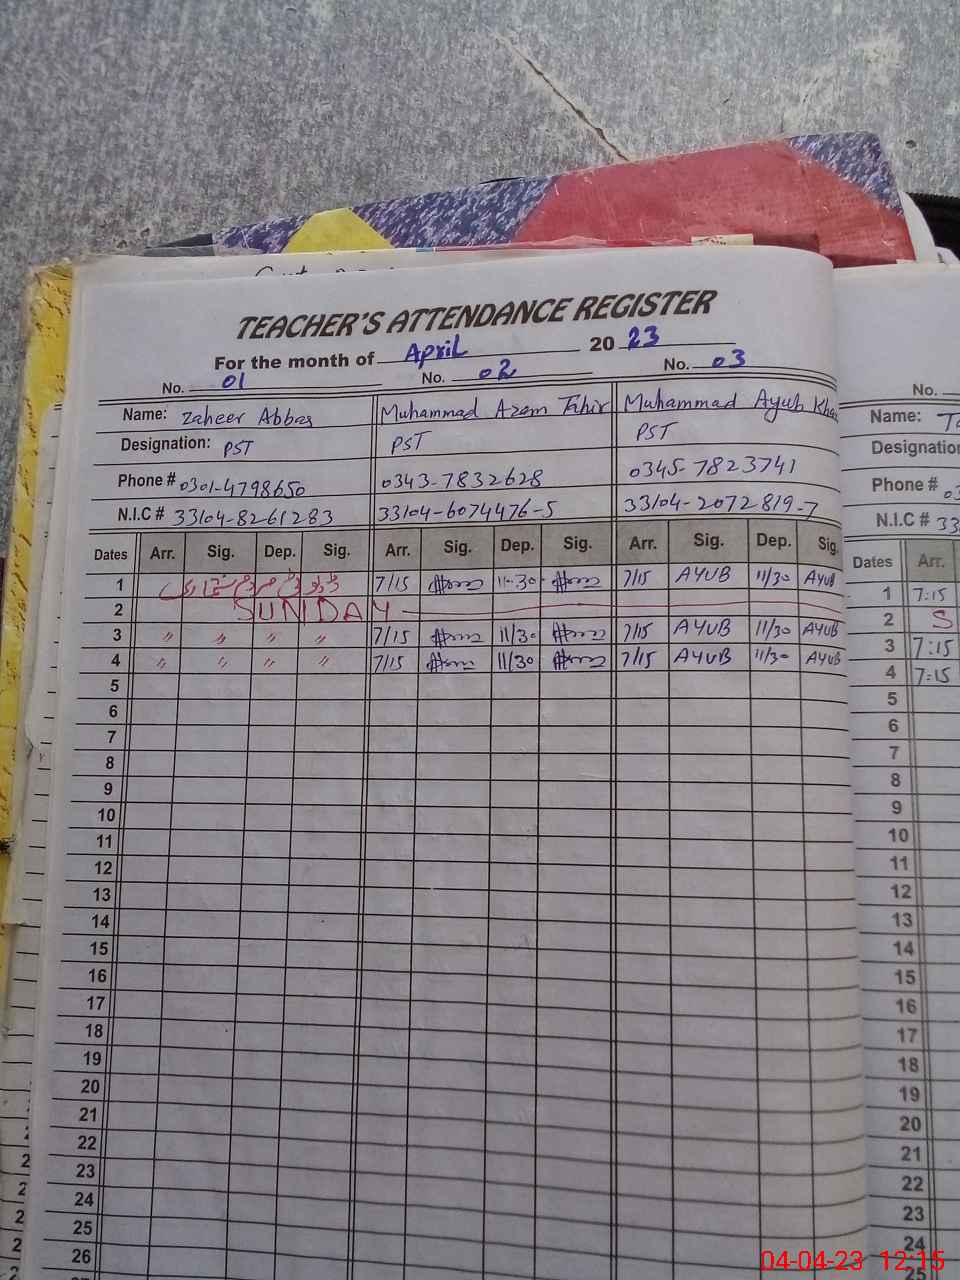 TEACHER'S ATTENDANCE REGISTER
For the month of April 2023
No. 01 No. 02 No. 03 No.
Name: Zaheer Abbas Muhammad Azam Tahir Muhammad Ayub Kha Name:
Designation: PST PST PST Designation
Phone # 0301-4798650 0343-7832628 0345-7823741 Phone # 03
N.I.C # 33104-8261283 33104-6074476-5 33104-2072819-7 N.I.C # 33
Dates Arr. Sig. Dep. Sig. Arr. Sig. Dep. Sig. Arr. Sig. Dep. Sig. Dates Arr.
1 7/15 11-30 7/15 AYUB 11/30 AYUB 1 7:15
2 SUNDAY 2 S
3 " " " " 7/15 11/30 7/15 AYUB 11/30 AYUB 3 7:15
4 " " " " 7/15 11/30 7/15 AYUB 11/30 AYUB 4 7:15
5 5
6 6
7 7
8 8
9 9
10 10
11 11
12 12
13 13
14 14
15 15
16 16
17 17
18 18
19 19
20 20
21 21
22 22
23 23
24 24
25 25
26
04-04-23 12:15